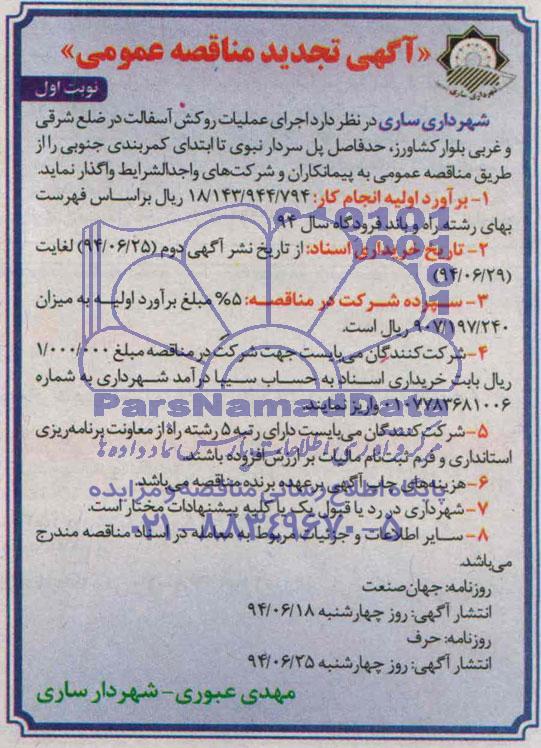 «آگهی تجدید مناقصه عمومی»
شهرداری ساری
نوبت اول
شهرداری ساری در نظر دارد اجرای عملیات روکش آسفالت در ضلع شرقی
و غربی بلوار کشاورز، حدفاصل پل سردار نبوی تا ابتدای کمربندی جنوبی را از
طریق مناقصه عمومی به پیمانکاران و شرکت‌های واجدالشرایط واگذار نماید.
۱- برآورد اولیه انجام کار: ۱۸/۱۴۳/۹۴۴/۷۹۴ ریال براساس فهرست
بهای رشته راه و باند فرودگاه سال ۹۴
۲- تاریخ خریداری اسناد: از تاریخ نشر آگهی دوم (۹۴/۰۶/۲۵) لغایت
(۹۴/۰۶/۲۹)
۳- سپرده شرکت در مناقصه: ۵% مبلغ برآورد اولیه به میزان
۹۰۷/۱۹۷/۲۴۰ ریال است.
۴- شرکت‌کنندگان می‌بایست جهت شرکت در مناقصه مبلغ ۱/۰۰۰/۰۰۰
ریال بابت خریداری اسناد به حساب سیبا درآمد شهرداری به شماره
۰۱۰۷۷۸۳۶۸۱۰۰۶ واریز نمایند.
ParsNamadData
۵- شرکت‌کنندگان می‌بایست دارای رتبه ۵ رشته راه از معاونت برنامه‌ریزی
استانداری و فرم ثبت‌نام مالیات بر ارزش افزوده باشند.
۶- هزینه‌های چاپ آگهی بر عهده برنده مناقصه می‌باشد.
پایگاه اطلاع رسانی مناقصه و مزایده
۷- شهرداری در رد یا قبول یک یا کلیه پیشنهادات مختار است.
۰۲۱-۸۸۳۴۹۶۷۰-۵
۸- سایر اطلاعات و جزئیات مربوط به معامله در اسناد مناقصه مندرج
می‌باشد.
روزنامه: جهان‌صنعت
انتشار آگهی: روز چهارشنبه ۹۴/۰۶/۱۸
روزنامه: حرف
انتشار آگهی: روز چهارشنبه ۹۴/۰۶/۲۵
مهدی عبوری- شهردار ساری